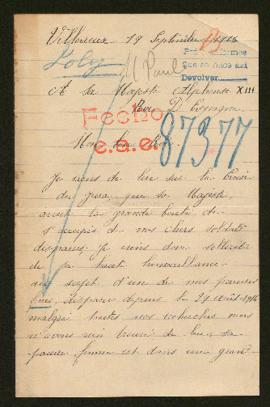 Villereux 17 Septembre 1916
Loly
M Paul
Pedir informes
que se fuese aquí
Devolver
A Sa Majesté Alphonse XIII
Roi d'Espagne
Fecho
e.a.e.
87377
Mon bon Roi
Je viens de lire sur la Croix
du Jura, que sa Majesté,
avait la grande bonté de
s'occuper de nos chers soldats
disparus. Je viens donc solliciter
de sa haute bienveillance
au sujet d'un de mes parents
disparu depuis le 24 août 1914
malgré toutes nos recherches nous
n'avons rien trouvé de lui, sa
pauvre femme est dans une grande